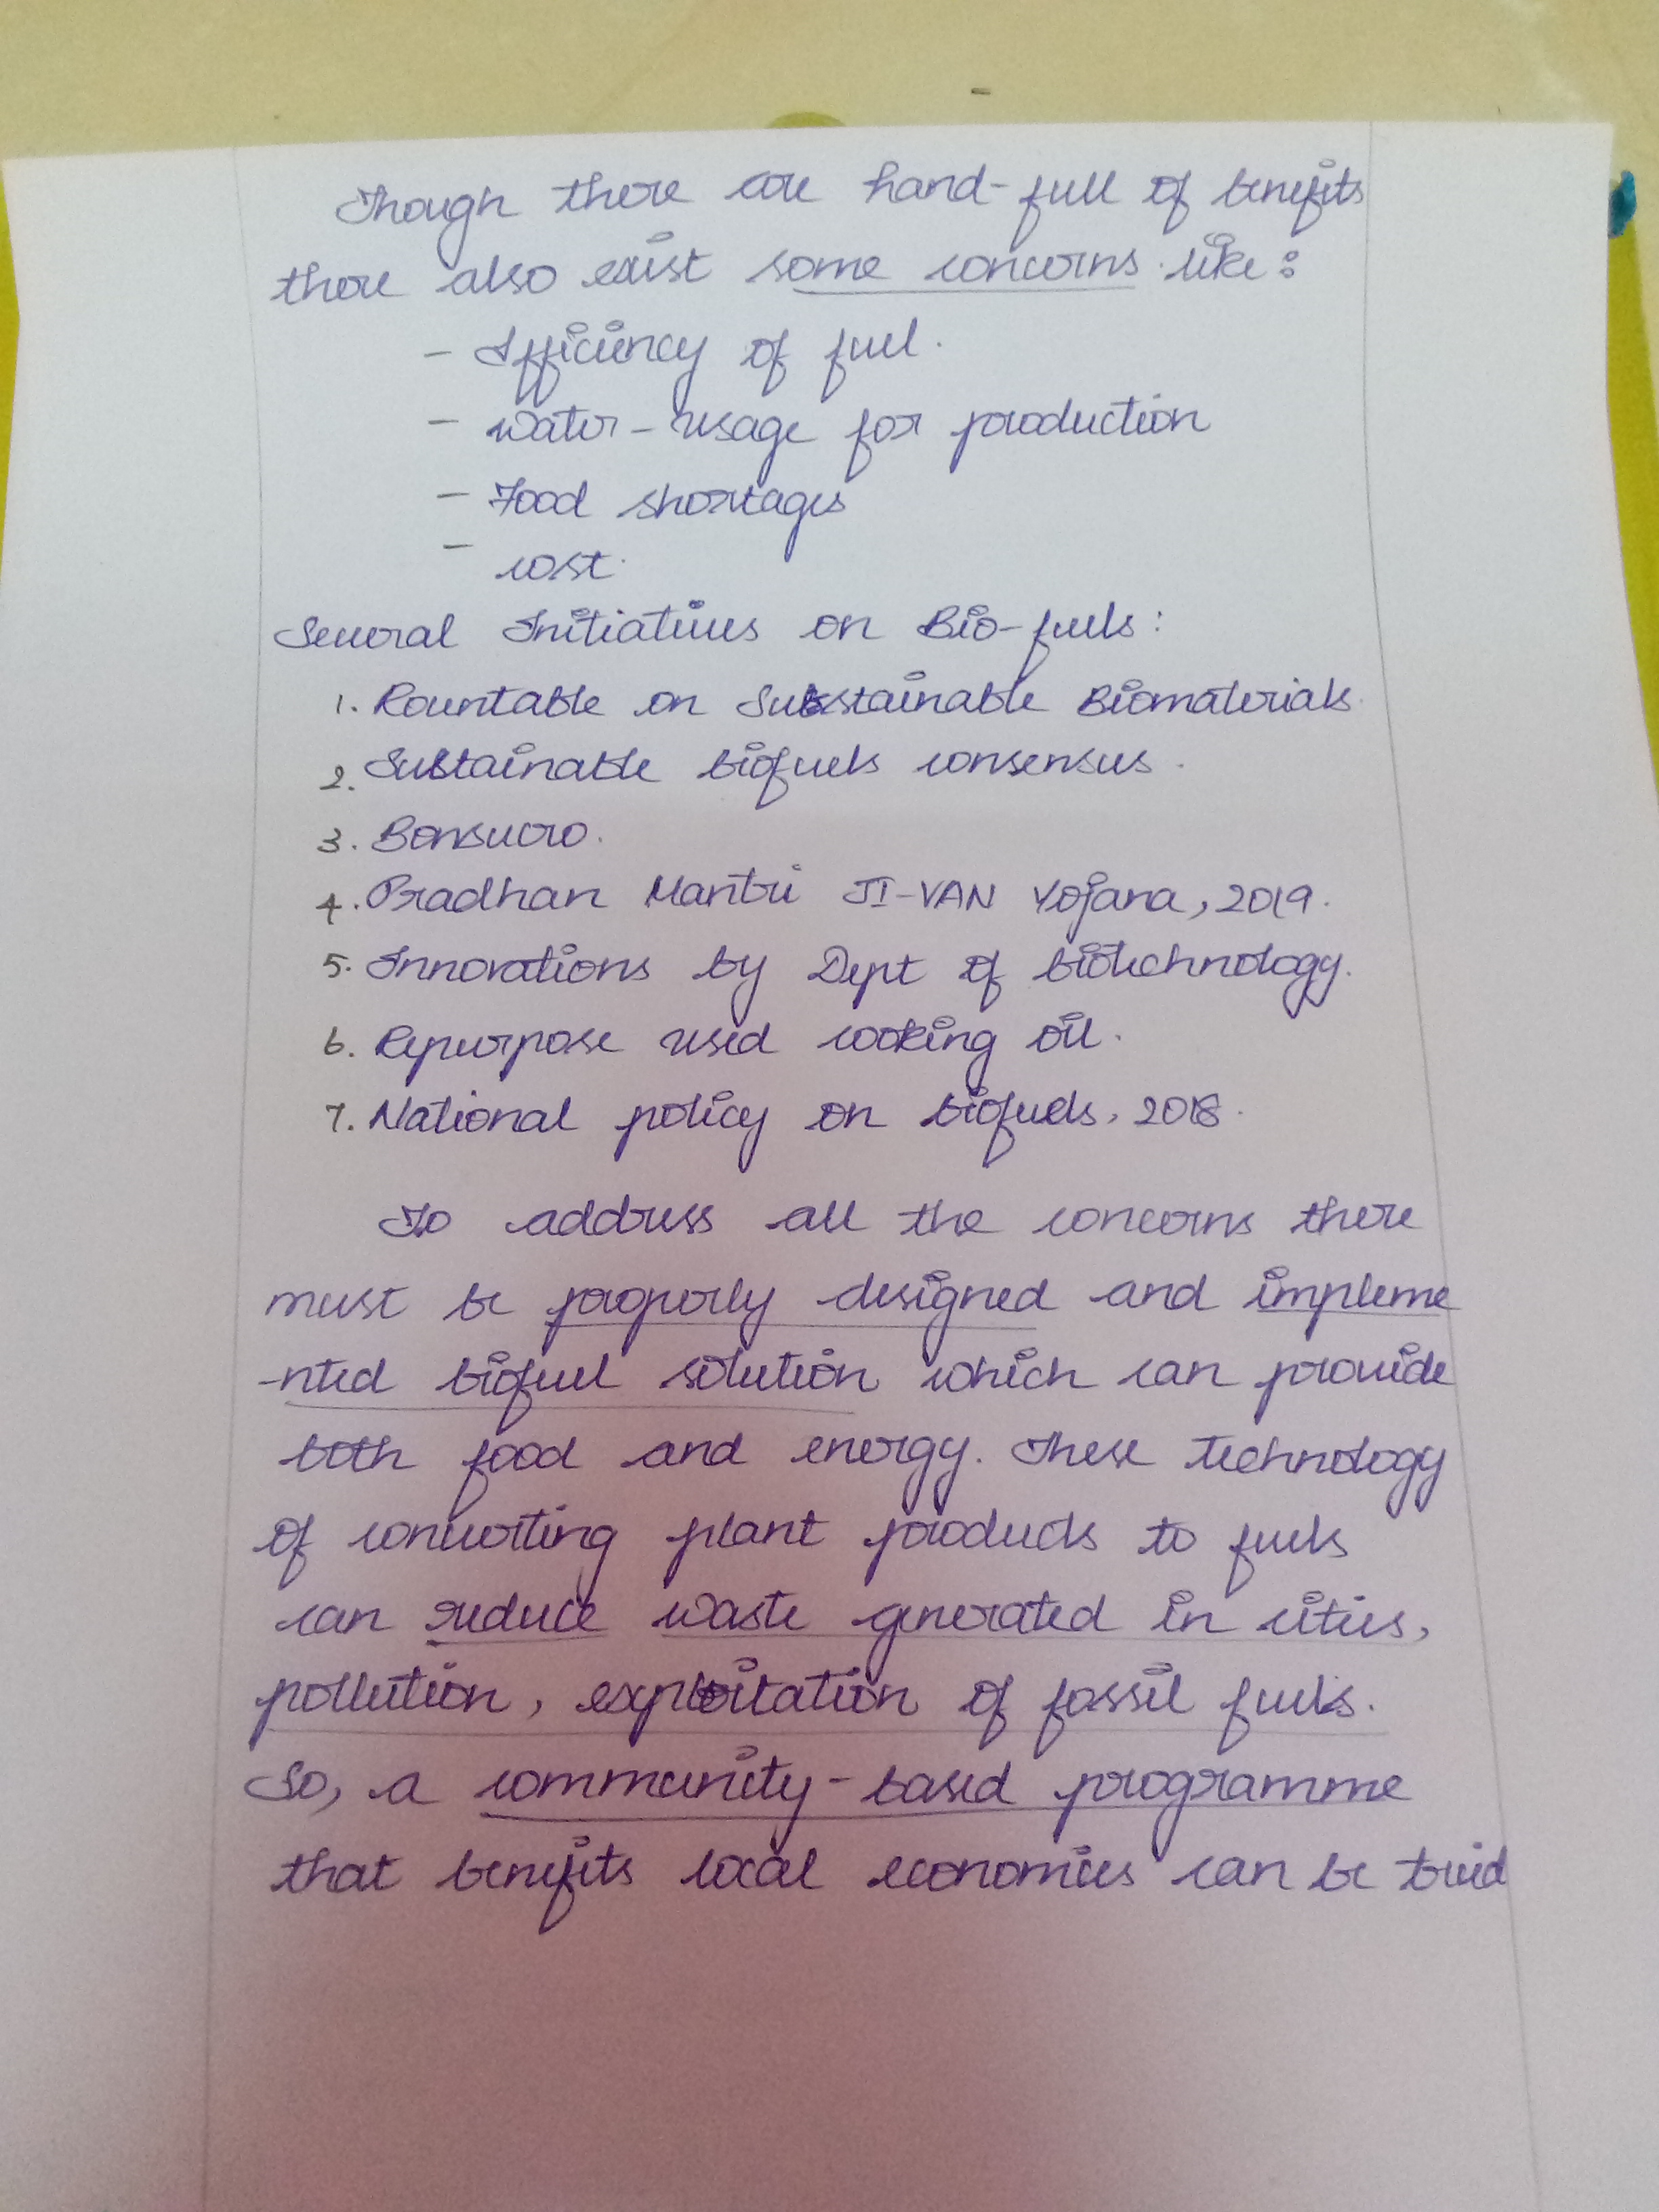 Though there are hand-full of benefits
there also exist some concerns like:
- Efficiency of fuel.
- Water-usage for production
- Food shortages
- cost.
Several Initiatives on Bio-fuels:
1. Rountable on Substainable Biomaterials.
2. Sustainable biofuels consensus.
3. Bonsucro.
4. Pradhan Mantri JI-VAN Yojana, 2019.
5. Innovations by Dept of biotechnology.
6. Repurpose used cooking oil.
7. National policy on biofuels, 2018.
To address all the concerns there
must be properly designed and impleme
-nted biofuel solution which can provide
both food and energy. These technology
of converting plant products to fuels
can reduce waste generated in cities,
pollution, exploitation of fossil fuels.
So, a community-based programme
that benefits local economies can be tried